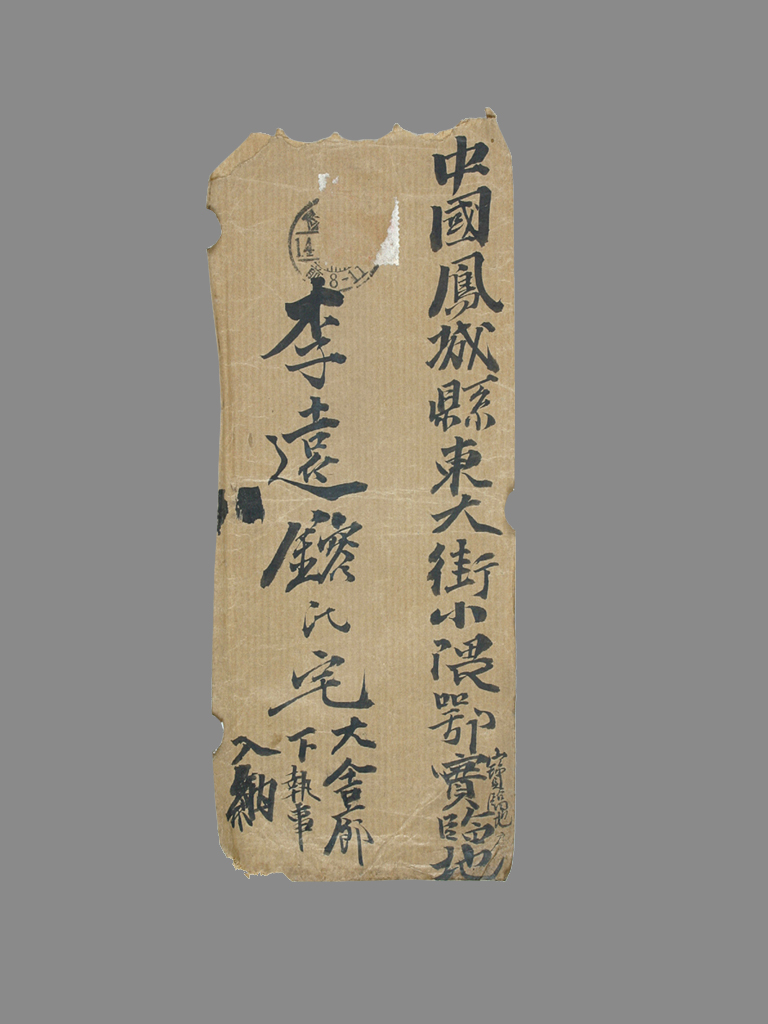 中國鳳城縣東大街小隈鄂實臨地
寶臨地
李遠鎔氏宅
大舍廊
下執事
入納
14
8-11